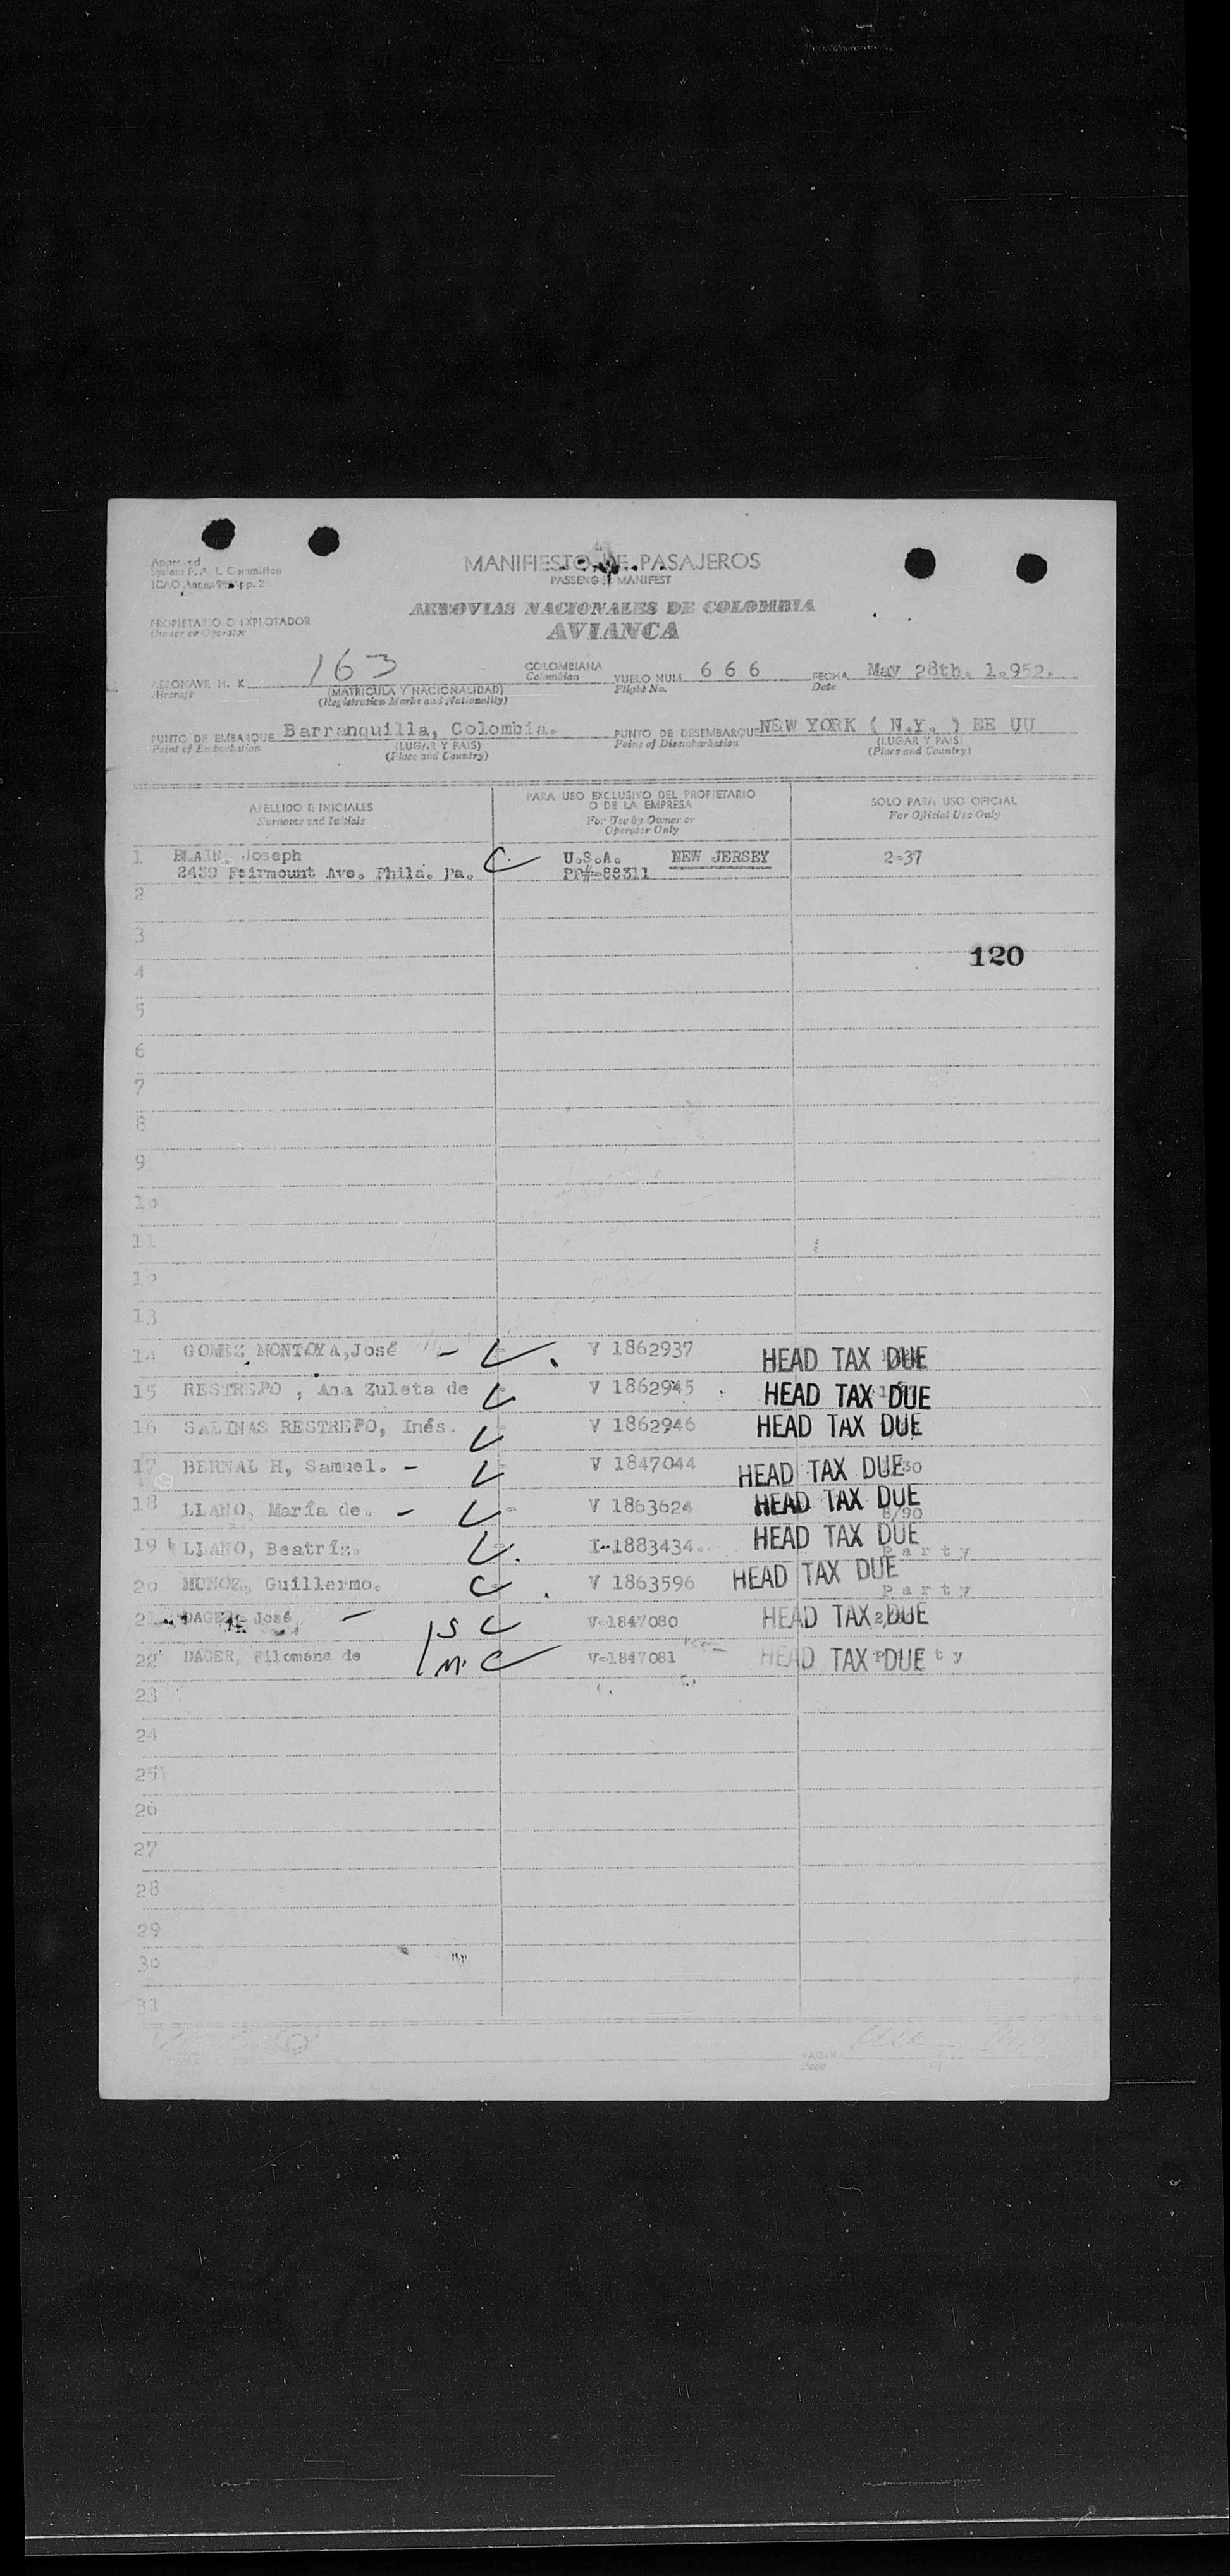 Approved
System F. A. L. Committee
ICAO Annex 9 App. 2
MANIFIESTO DE PASAJEROS
PASSENGER MANIFEST
AEROVIAS NACIONALES DE COLOMBIA
AVIANCA
PROPIETARIO O EXPLOTADOR
Owner or Operator
AERONAVE H. K. 163 COLOMBIANA VUELO NUM. 6 6 6 FECHA May 28th. 1.952.
Aircraft (MATRICULA Y NACIONALIDAD) Colombian Flight No. Date
(Registration Marks and Nationality)
PUNTO DE EMBARQUE Barranquilla, Colombia. PUNTO DE DESEMBARQUE NEW YORK ( N.Y. ) EE UU
Point of Embarkation (LUGAR Y PAIS) Point of Disembarkation (LUGAR Y PAIS)
(Place and Country) (Place and Country)
APELLIDO E INICIALES PARA USO EXCLUSIVO DEL PROPIETARIO SOLO PARA USO OFICIAL
Surname and Initials O DE LA EMPRESA For Official Use Only
For Use by Owner or
Operator Only
1 BLAIR, Joseph C U.S.A. NEW JERSEY 2-37
2439 Fairmount Ave. Phila. Pa. PP#-88311
2
3
120
4
5
6
7
8
9
10
11
12
13
14 GOMEZ MONTOYA, José - V 1862937 HEAD TAX DUE
15 RESTREPO , Ana Zuleta de V 1862945 HEAD TAX DUE
16 SALINAS RESTREPO, Inés. V 1862946 HEAD TAX DUE
17 BERNAL H, Samuel. - V 1847044 HEAD TAX DUE 30
18 LLANO, María de. - V 1863624 HEAD TAX DUE
8/90
19 LLANO, Beatríz. I-1883434. HEAD TAX DUE
Party
20 MUNOZ, Guillermo. C V 1863596 HEAD TAX DUE
Party
21 DAGER, José - 1 S C V-1847080 HEAD TAX DUE
22 DAGER, Filomena de 1 M. C V-1847081 HEAD TAX DUE
23
24
25
26
27
28
29
30
31
PAGINA
Page